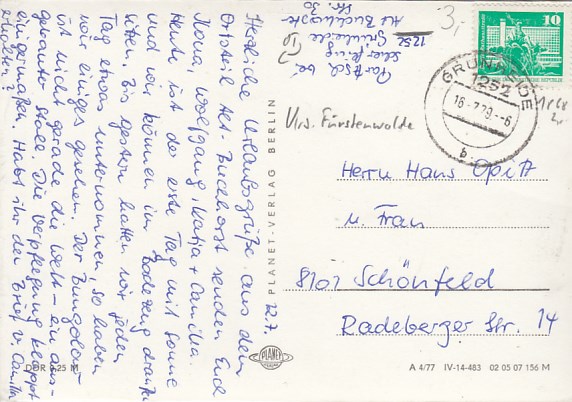 Herzliche Urlaubsgrüße aus dem
Ortsteil Alt-Buchhorst senden Euch
Ilona, Wolfgang, Katja + Camilla.
Heute ist der erste Tag mit Sonne
und wir können im Badezeug draußen
sitzen. Bis gestern hatten wir jeden
Tag etwas unternommen, so haben
wir einiges gesehen. Der Bungalow
ist nicht gerade die Welt – ein aus-
Die Verpflegung klappt
einigermaßen. Habt ihr den Brief v. Camilla
22.7.
bei
1252 Grünheide
Alt Buchhorster
Str. 30
3,-
10
GRÜNHEIDE
1252
16-7.79-6
b
Krs. Fürstenwalde
Herrn Hans Opitz
u. Frau
8101 Schönfeld
Radeberger Str. 14
PLANET-VERLAG BERLIN
PLANET
DDR 0,25 M
A 4/77 IV-14-483 02 05 07 156 M